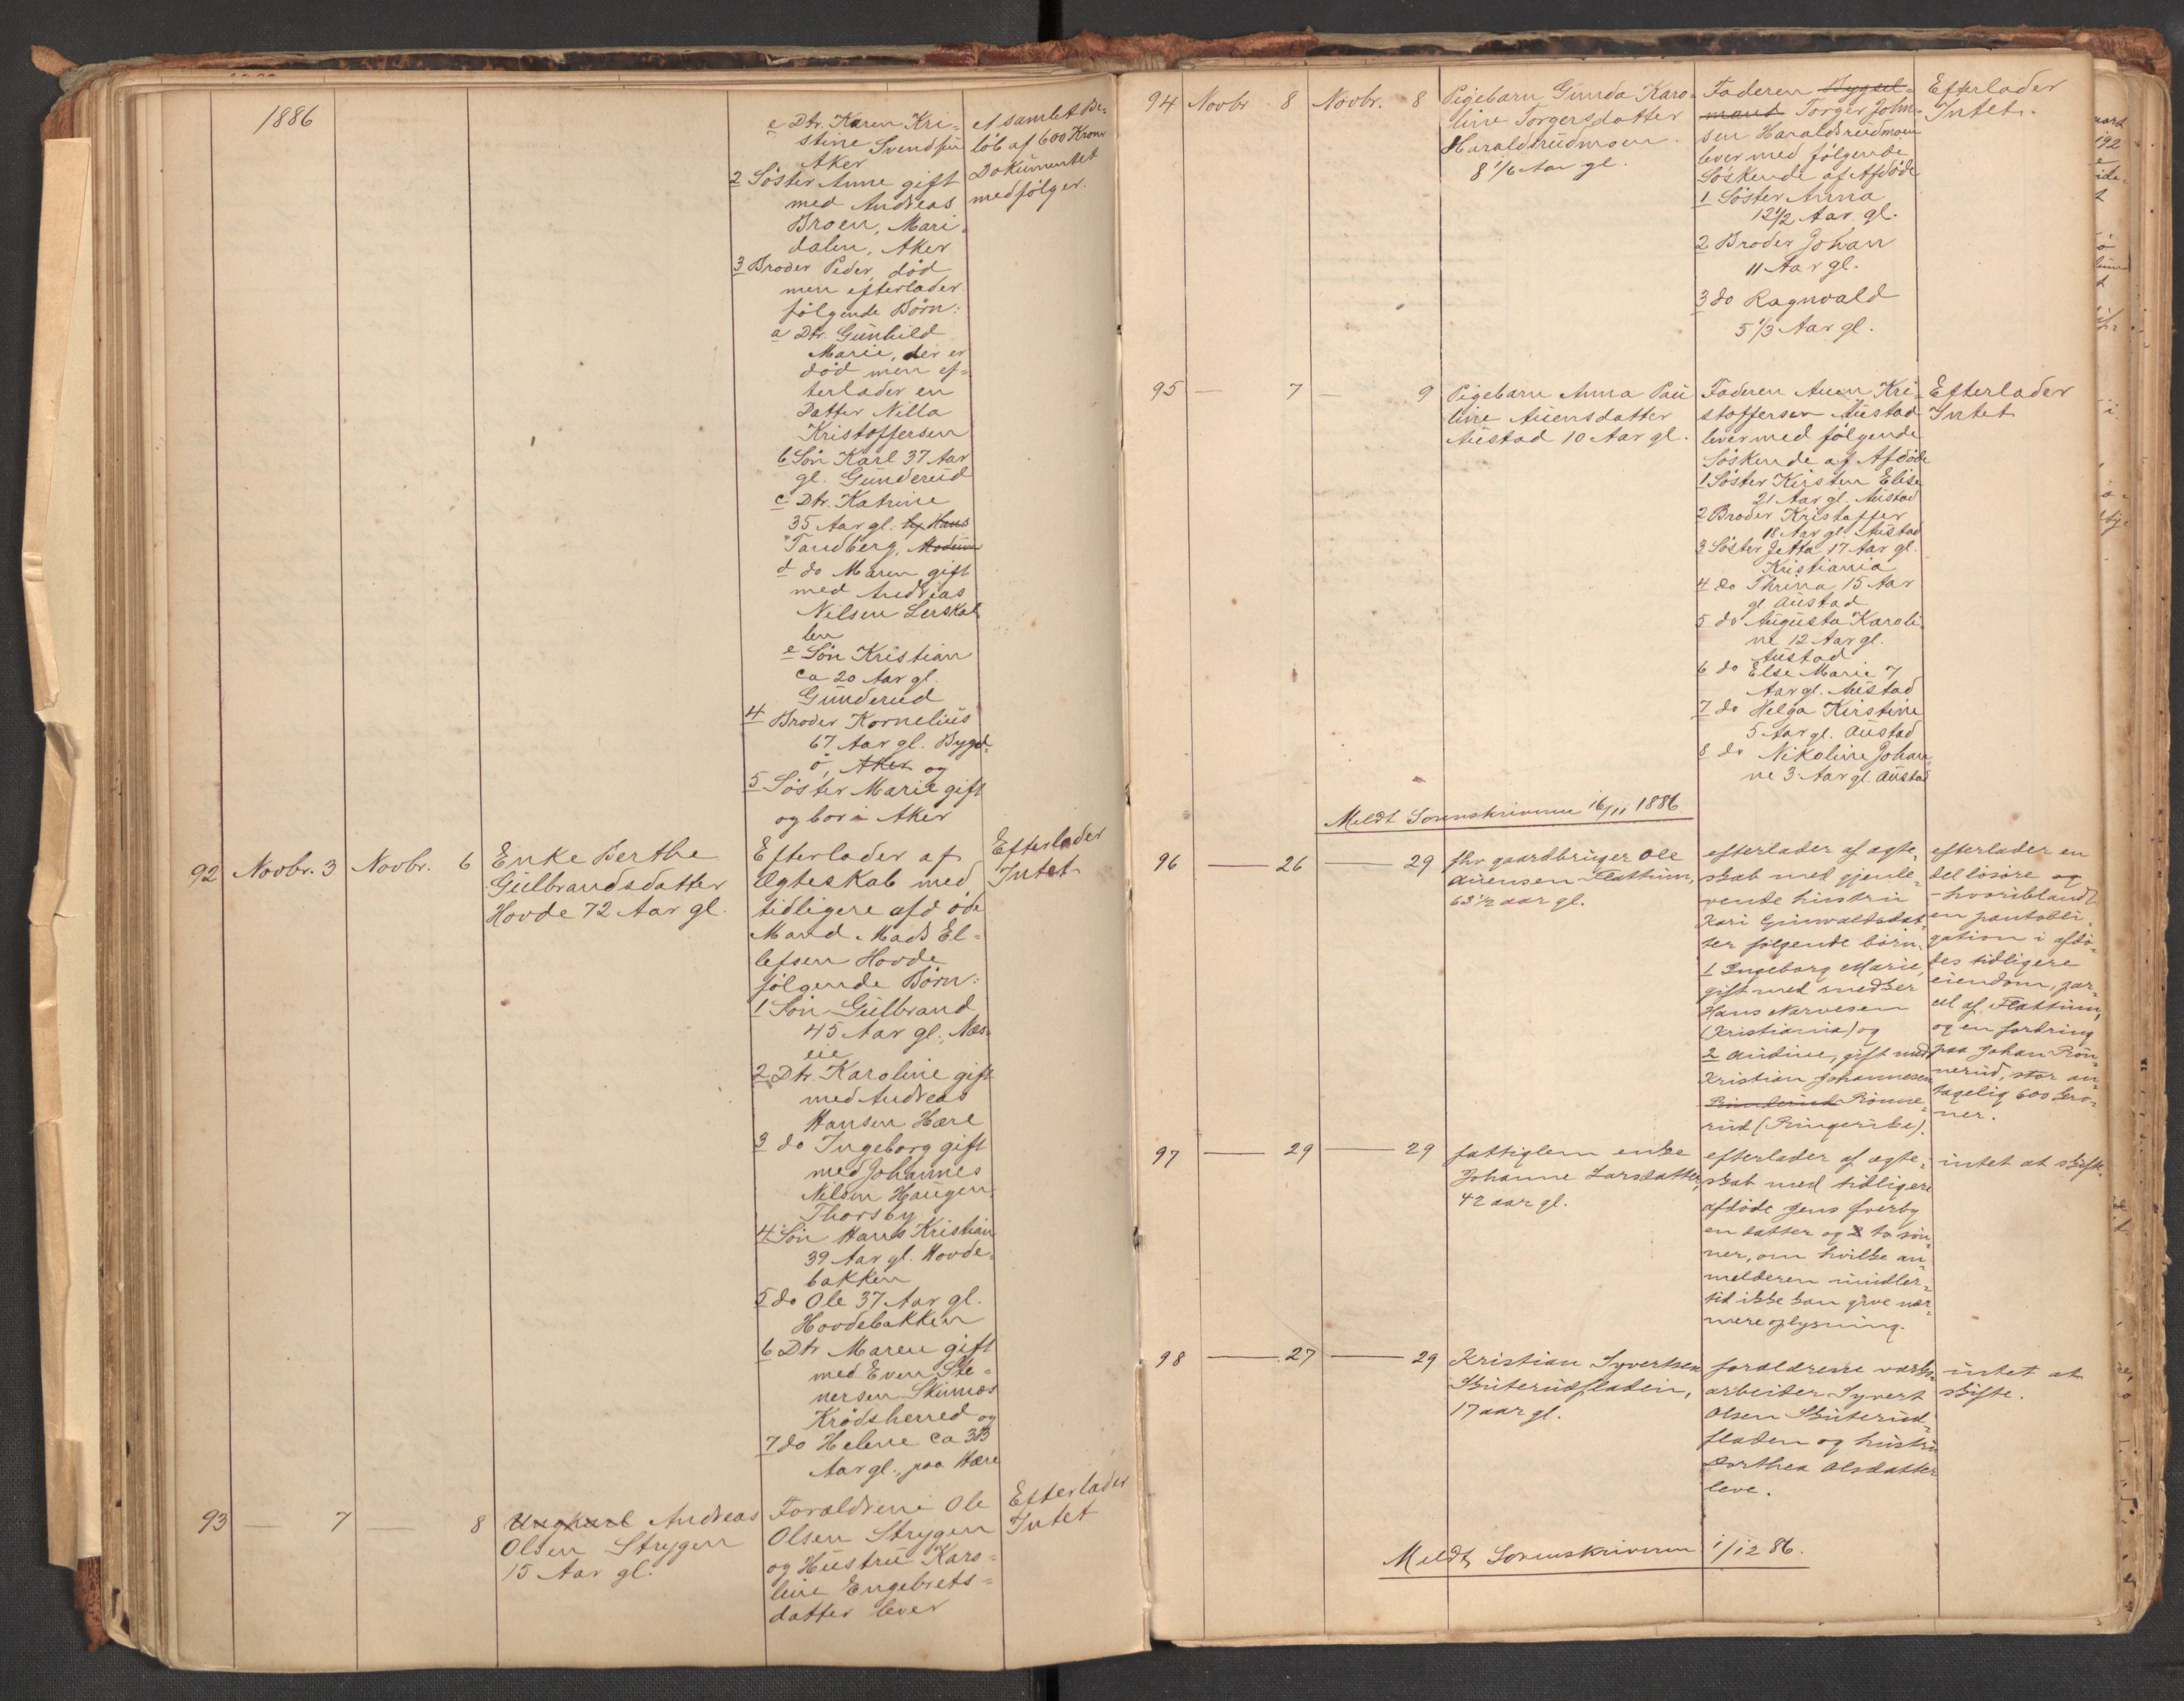 1886
e Dtr. Karen Kri-
stine Svendsen
Aker
2 Söster Anne gift
med Andreas
Broen, Mari-
dalen, Aker
3 Broder Peder, död
men efterlader
følgende Börn:
a Dtr. Gunhild
Marie, der er
död men ef-
terlader en
Datter Nilla
Kristoffersen
b Sön Karl 37 Aar
gl. Gunderud
c Dtr. Katrine
35 Aar gl. Hans
Tandberg, Modum
d do Maren gift
med Andreas
Nilsen Lerskal
len
e Sön Kristian
ca 20 Aar gl.
Gunderud
4 Broder Kornelius
67 Aar gl. Bygd-
ö, Aker og
5 Söster Marie gift
og bor i Aker
et samlet Be-
löb af 600 Kroner
Dokumentet
medfølger.
92 Novbr. 3 Novbr. 6
Enke Berthe
Gulbrandsdatter
Hovde 72 Aar gl.
Efterlader af
Ægteskab med
tidligere afdöde
Mand Mads El-
lefsen Hovde
følgende Börn:
1 Sön Gulbrand
45 Aar gl., Næs-
eie
2 Dtr. Karoline gift
med Andreas
Hansen Hære
3 do Ingeborg gift
med Johannes
Nilsen Haugen,
Thorsby
4 Sön Hans Kristian
39 Aar gl. Hovde-
bakken
5 do Ole 37 Aar gl.
Hovdebakken
6 Dtr Maren gift
med Even Ste-
nersen Skinnes
Krödsherred og
7 do Helene ca 33
Aar gl., paa Hære
Efterlader
Intet
93 — 7 — 8
Ungkarl Andreas
Olsen Strygen
15 Aar gl.
Forældrene Ole
Olsen Strygen
og Hustru Karo-
line Engebrets-
datter lever
Efterlader
Intet
94 Novbr 8 Novbr. 8
Pigebarn Gunda Karo-
line Torgersdatter
Haraldsrudmoen.
8 1/6 Aar gl.
Faderen Bygsel-
mand Torger John-
sen Haraldsrudmoen
lever med følgende
Söskende af Afdöde
1 Söster Anna
12 1/2 Aar gl.
2 Broder Johan
11 Aar gl.
3 do Ragnvald
5 1/3 Aar gl.
Efterlader
Intet.
95 — 7 — 9
Pigebarn Anna Pau
line Auensdatter
Austad 10 Aar gl.
Faderen Auen Kri-
stoffersen Austad
lever med følgende
Söskende af Afdöde
1 Söster Kirsten Elise
21 Aar gl. Austad
2 Broder Kristoffer
18 Aar gl. Austad
3 Söster Jetta 17 Aar gl.
Kristiania
4 do Thrina 15 Aar
gl. Austad
5 do Augusta Karoli
ne 12 Aar gl.
Austad
6 do Else Marie 7
Aar gl. Austad
7 do Helga Kirstine
5 Aar gl. Austad
8 do Nikoline Johan
ne 3 Aar gl. Austad
Efterlader
Intet
Meldt Sorenskriveren 16/11 1886
96 — 26 — 29
fhv gaardbruger Ole
Auensen Flattum,
63 1/2 aar gl.
efterlader af ægte-
skab med gjenle-
vende hustru
Kari Gunvaldsdat-
ter følgende börn:
1 Ingeborg Marie,
gift med snedker
Hans Narvesen
(Kristiania) og
2 Audine, gift med
Kristian Johannesen
Rönne-
rud (Ringerike).
efterlader en
del lösöre og
- hvoriblandt
en pantobli-
gation i afdö-
des tidligere
eiendom, par-
cel af Flattum,
og en fordring
paa Johan Rön-
nerud, stor an-
tagelig 600 kro-
ner.
97 — 29 — 29
fattiglem enke
Johanne Larsdatter,
42 aar gl.
efterlader af ægte-
skab med tidligere
afdöde Jens Hverby
en datter og 2 to sön-
ner, om hvilke an-
melderen imidler-
tid ikke kan give nær-
mere oplysning.
intet at skifte.
98 — 27 — 29
Kristian Syvertsen
Skuterudfladen,
17 aar gl.
forældrene
arbeider Syvert
Olsen Skuterud-
fladen og hustru
Dorthea Olsdatter
leve.
intet at
skifte.
Meldt Sorenskriveren 1/12 86.